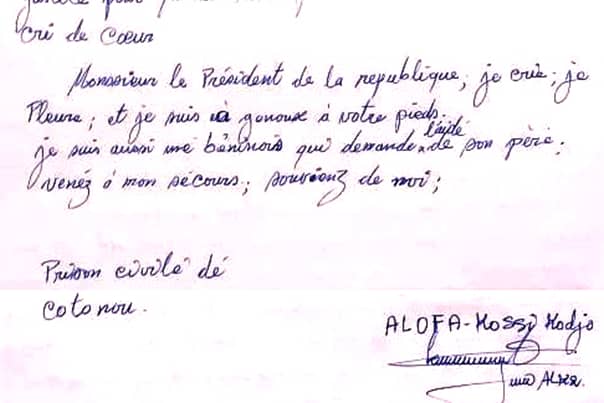 Cri de Cœur
Monssieur le Président de la republique; je crie; je
Pleure; et je suis à genoux à votre pieds.
je suis aussi une béninois qui demande l'aidé de son père;
venéz à mon sécours; souvienéz de moi;
Prison civilé dé
Cotonou.
ALOFA-Hossi Kodjo